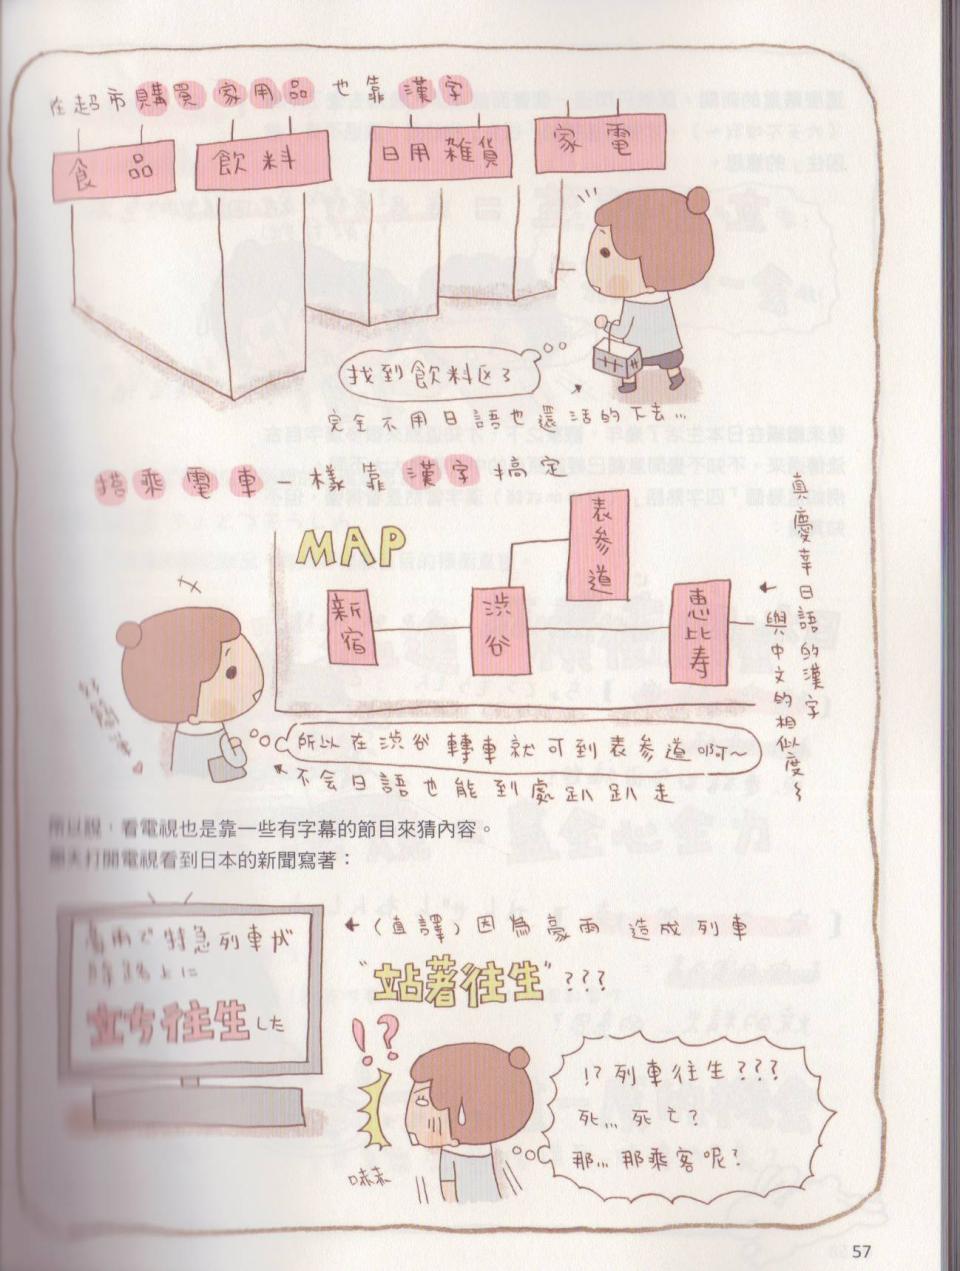 在超市購買家用品也靠漢字
食品
飲料
日用雜貨
家電
找到飲料区了
完全不用日語也還活的下去...
搭乘電車一樣靠漢字搞定
MAP
表参道
新宿
渋谷
恵比寿
真慶幸日語的漢字
與中文的相似度~
好簡單
所以在渋谷轉車就可到表参道啊~
不会日語也能到處趴趴走
所以說，看電視也是靠一些有字幕的節目來猜內容。
打開電視看到日本的新聞寫著：
豪雨で特急列車が
線路上に
立ち往生した
(直譯)因為豪雨造成列車
"站著往生"???
!?
!?列車往生???
死...死亡?
那...那乘客呢?
57